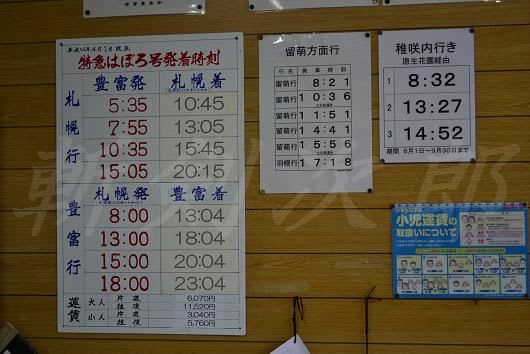 平成26年4月1日改正
特急はぼろ号発着時刻
豊富発 札幌着
札幌行
5:35 10:45
7:55 13:05
10:35 15:45
15:05 20:15
札幌発 豊富着
豊富行
8:00 13:04
13:00 18:04
15:00 20:04
18:00 23:04
運賃
大人 片道 6,070円
往復 11,520円
小人 片道 3,040円
往復 5,760円
留萌方面行
行先 発車時刻
留萌行 8:21
留萌行 10:36
留萌行 11:51
留萌行 14:41
留萌行 15:56
羽幌行 17:18
稚咲内行き
原生花園経由
1 8:32
2 13:27
3 14:52
期間 6月1日~9月30日まで
小児運賃の
取扱いについて